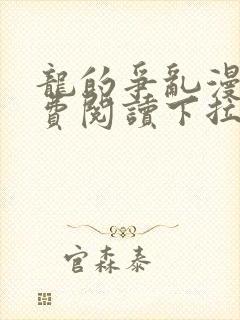 龍的爭亂漫
費閱讀下拉
官森泰